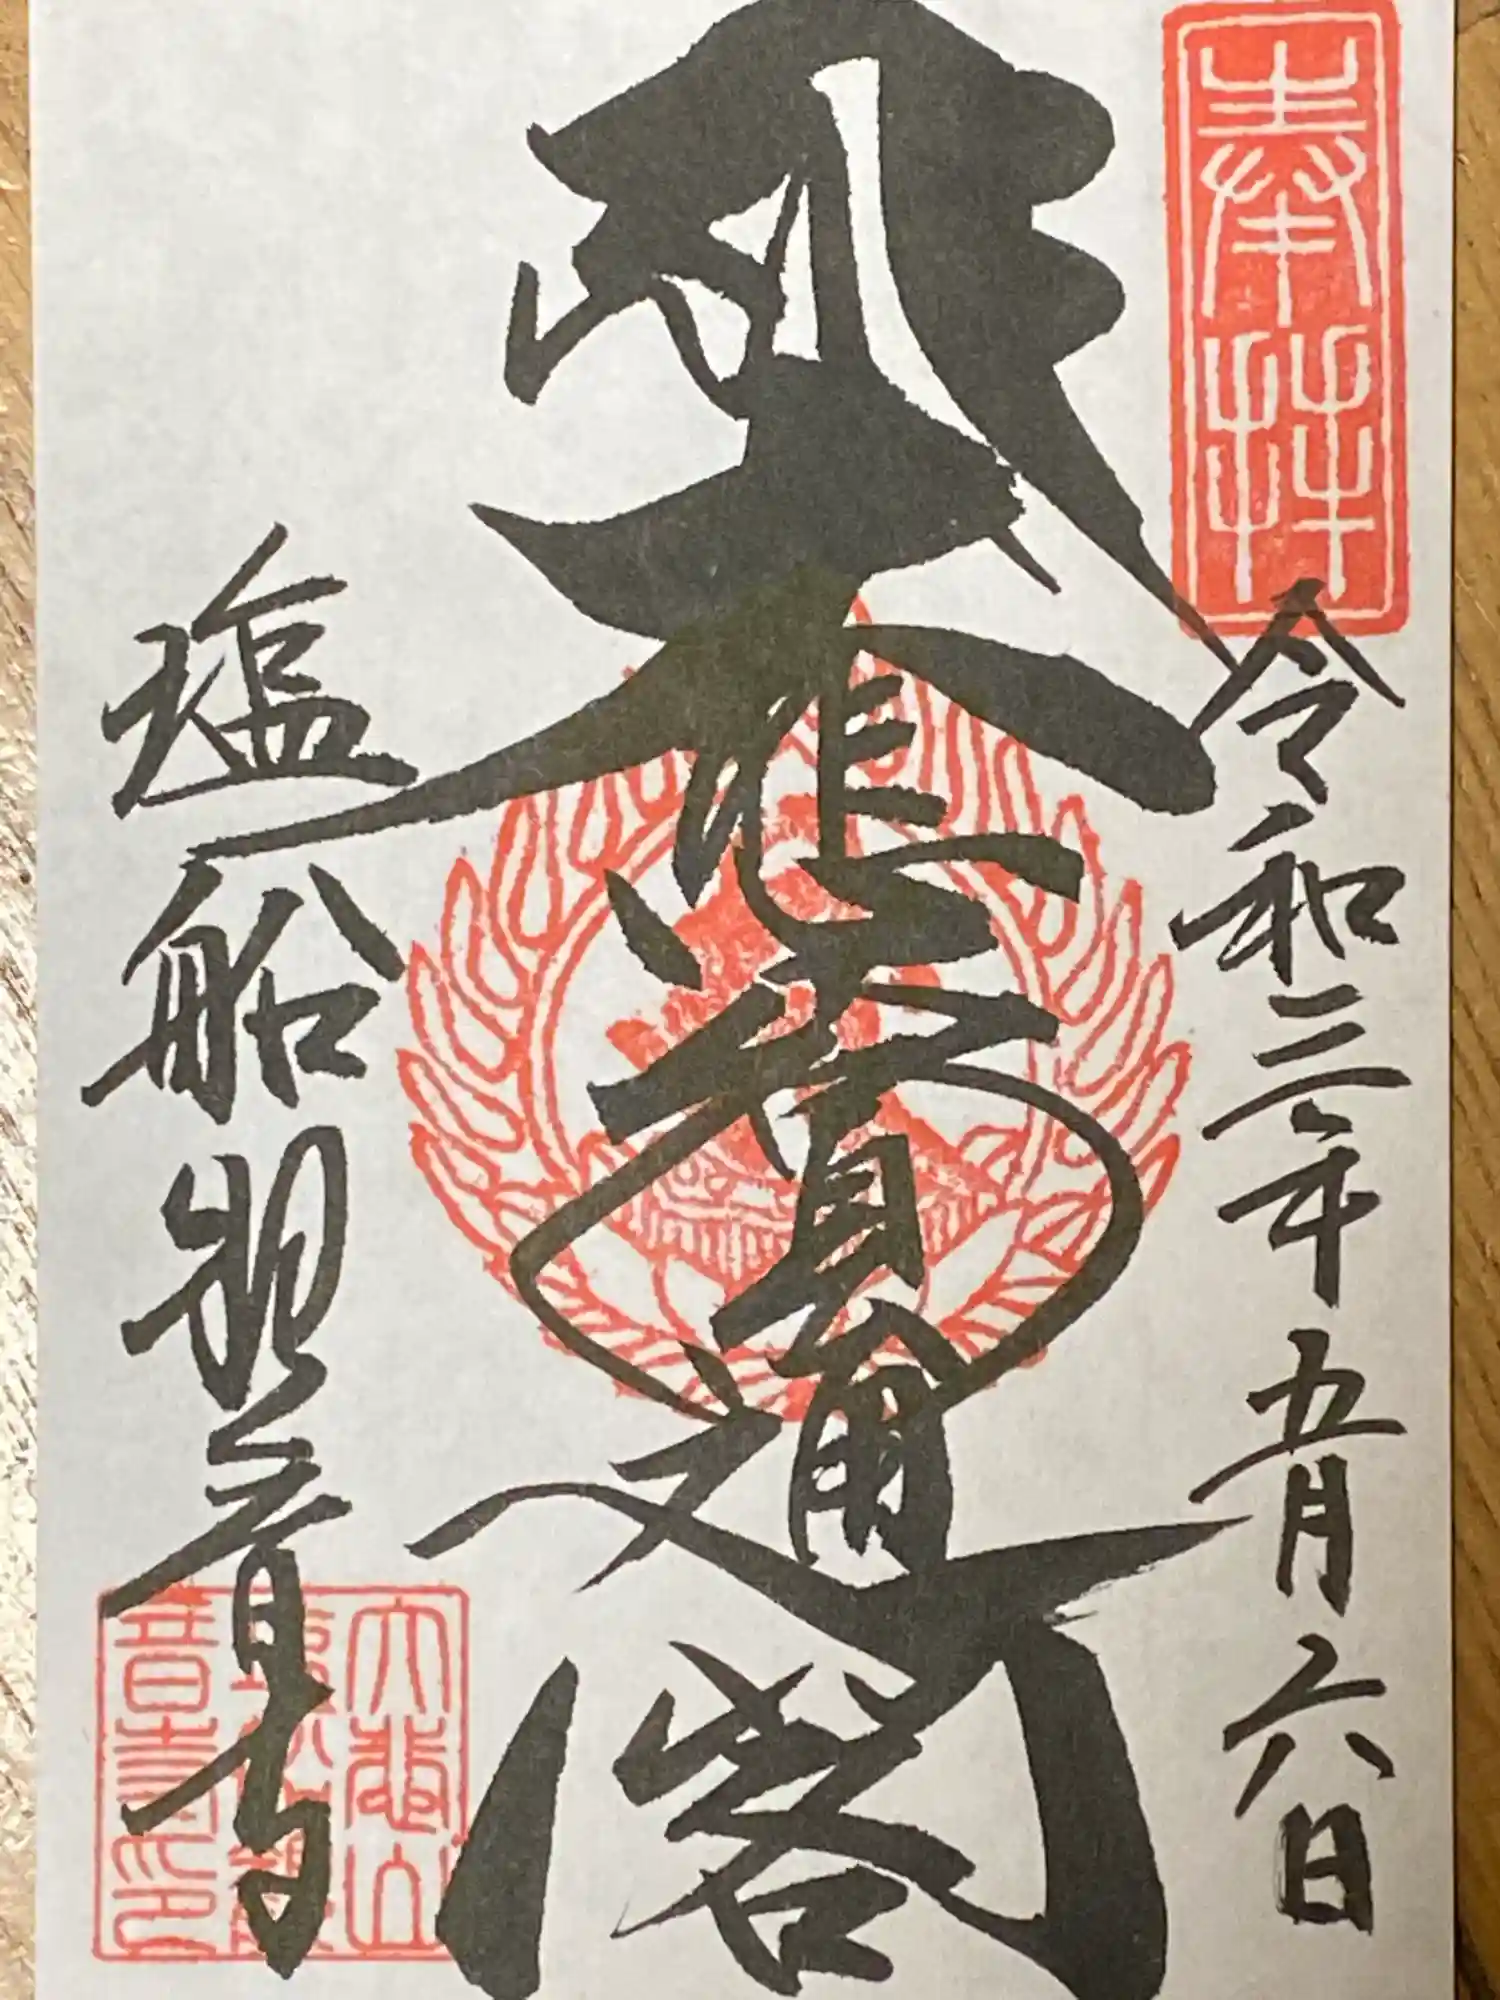 奉拝
令和三年五月六日
圓通閣
塩船観音寺
大悲山
塩船観
音寺印